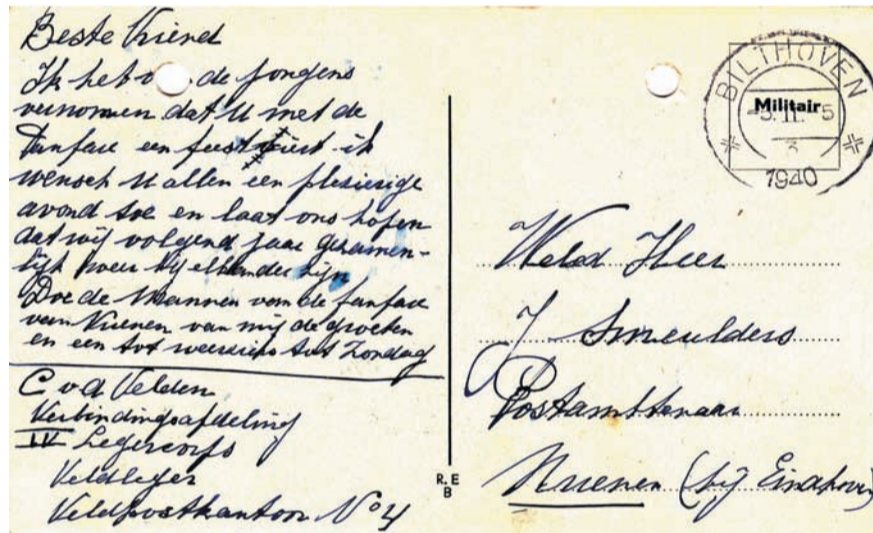 Beste Vriend
Ik heb v de jongens
vernomen dat U met de
fanfare een feest viert ik
wensch U allen een plesierige
avond toe en laat ons hopen
dat wij volgend jaar gezamen-
lijk weer bij elkander zijn
Doe de Mannen van de fanfare
van Nuenen van mij de groeten
en een tot weerziens tot Zondag
C v d Velden
Verbindingsafdeling
IV Legercorps
Veldleger
Veldpostkantoor No 4
R.E
B
BILTHOVEN
Militair
-5.II. 5
3
1940
Weled Heer
J Smeulders
Postambtenaar
Nuenen (bij Eindhoven)